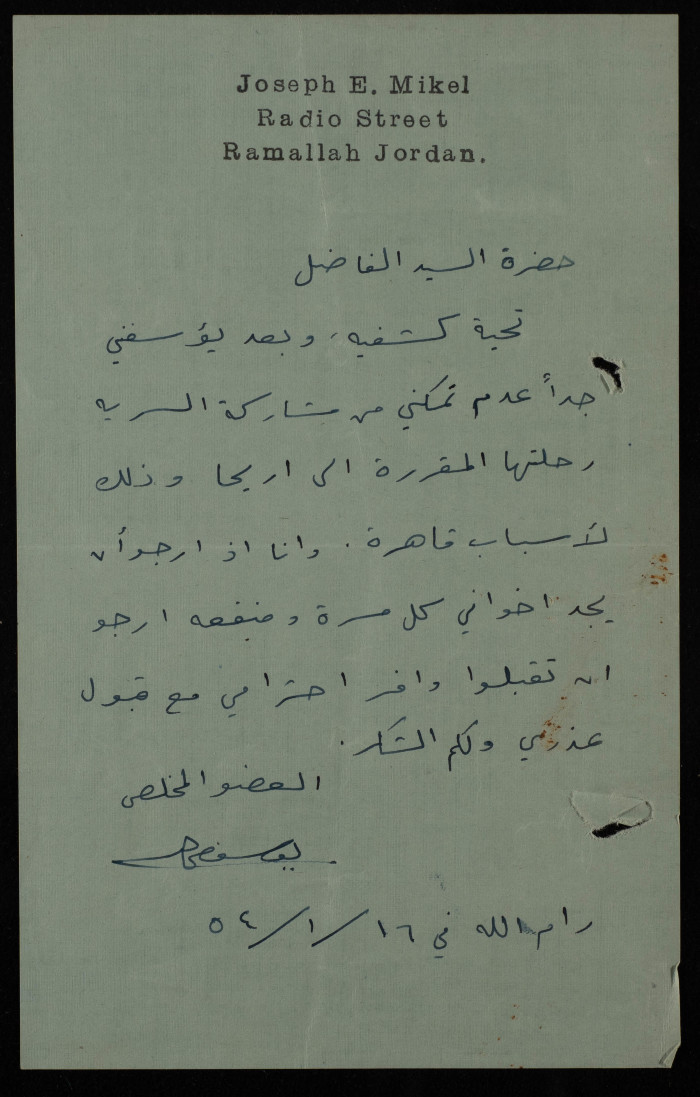 Joseph E. Mikel
Radio Street
Ramallah Jordan.
حضرة السيد الفاضل
تحية كشفيه، وبعد يؤسفني
جداً عدم تمكني من مشاركة السريه
رحلتها المقررة الى اريحا وذلك
لأسباب قاهرة. وانا اذ ارجو أن
يجد اخواني كل مسرة ومنفعه ارجو
ان تقبلوا وافر احترامي مع قبول
عذري ولكم الشكر.
العضو المخلص
رام الله في ١٦/١/٥٤